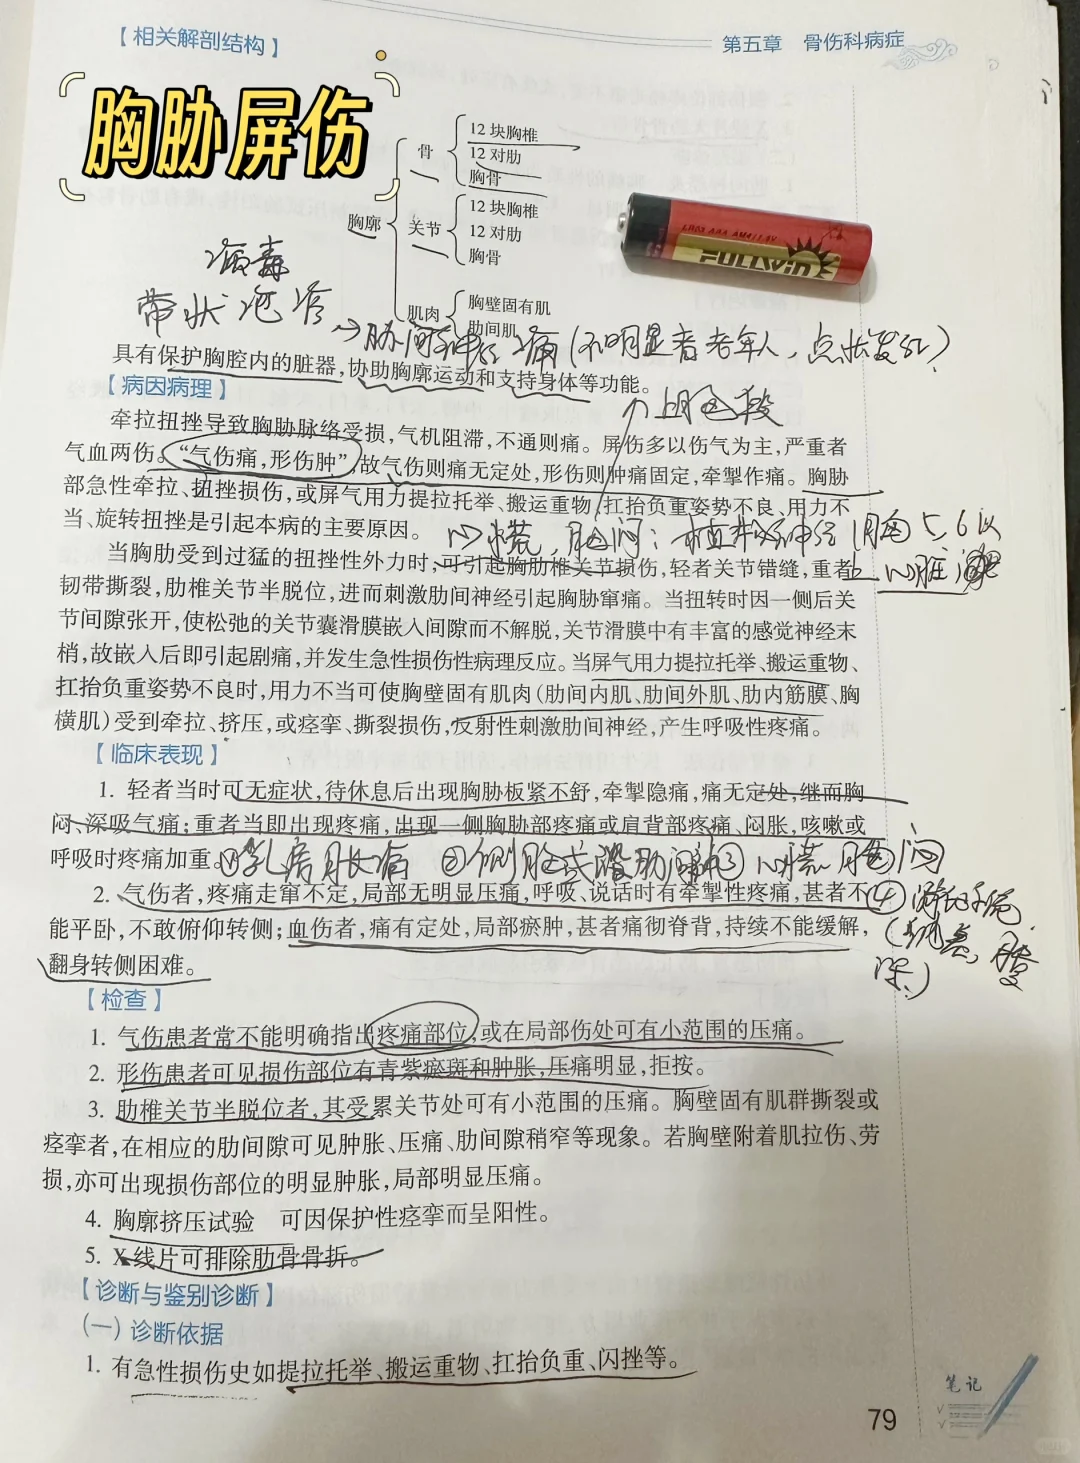 【相关解剖结构】
第五章 骨伤科病症
胸胁屏伤
胸廓
骨
12块胸椎
12对肋
胸骨
关节
12块胸椎
12对肋
胸骨
肌肉
胸壁固有肌
肋间肌
LR03 AAA AM4/1.5V
FULLWIN
病毒
带状泡疹
→肋间神经痛(不明显者老年人,点状发红)
具有保护胸腔内的脏器,协助胸廓运动和支持身体等功能。
【病因病理】
牵拉扭挫导致胸胁脉络受损,气机阻滞,不通则痛。屏伤多以伤气为主,严重者
气血两伤。“气伤痛,形伤肿”,故气伤则痛无定处,形伤则肿痛固定,牵掣作痛。胸胁
部急性牵拉、扭挫损伤,或屏气用力提拉托举、搬运重物,扛抬负重姿势不良、用力不
当、旋转扭挫是引起本病的主要原因。
心慌,胸闷:植物神经
当胸肋受到过猛的扭挫性外力时,可引起胸肋椎关节损伤,轻者关节错缝,重者
韧带撕裂,肋椎关节半脱位,进而刺激肋间神经引起胸胁窜痛。当扭转时因一侧后关
节间隙张开,使松弛的关节囊滑膜嵌入间隙而不解脱,关节滑膜中有丰富的感觉神经末
梢,故嵌入后即引起剧痛,并发生急性损伤性病理反应。当屏气用力提拉托举、搬运重物、
扛抬负重姿势不良时,用力不当可使胸壁固有肌肉(肋间内肌、肋间外肌、肋内筋膜、胸
横肌)受到牵拉、挤压,或痉挛、撕裂损伤,反射性刺激肋间神经,产生呼吸性疼痛。
【临床表现】
1. 轻者当时可无症状,待休息后出现胸胁板紧不舒,牵掣隐痛,痛无定处,继而胸
闷、深吸气痛;重者当即出现疼痛,出现一侧胸胁部疼痛或肩背部疼痛、闷胀,咳嗽或
呼吸时疼痛加重。
①乳房胀痛 ②侧胸或沿肋间 ③心慌胸闷
2. 气伤者,疼痛走窜不定,局部无明显压痛,呼吸、说话时有牵掣性疼痛,甚者不
能平卧,不敢俯仰转侧;血伤者,痛有定处,局部瘀肿,甚者痛彻脊背,持续不能缓解,
翻身转侧困难。
④
【检查】
1. 气伤患者常不能明确指出疼痛部位,或在局部伤处可有小范围的压痛。
2. 形伤患者可见损伤部位有青紫瘀斑和肿胀,压痛明显,拒按。
3. 肋椎关节半脱位者,其受累关节处可有小范围的压痛。胸壁固有肌群撕裂或
痉挛者,在相应的肋间隙可见肿胀、压痛、肋间隙稍窄等现象。若胸壁附着肌拉伤、劳
损,亦可出现损伤部位的明显肿胀,局部明显压痛。
4. 胸廓挤压试验 可因保护性痉挛而呈阳性。
5. X线片可排除肋骨骨折。
【诊断与鉴别诊断】
(一)诊断依据
1. 有急性损伤史如提拉托举、搬运重物、扛抬负重、闪挫等。
笔记
79